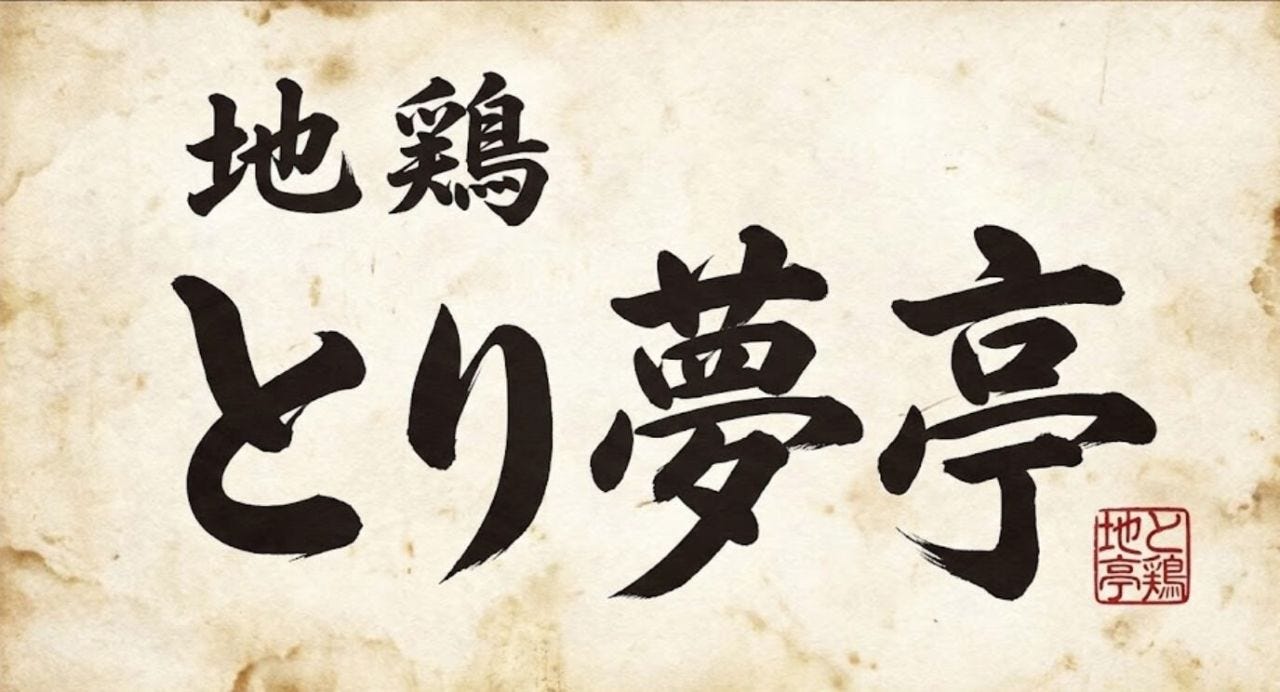 地鶏
とり夢亭
地と
亭鶏